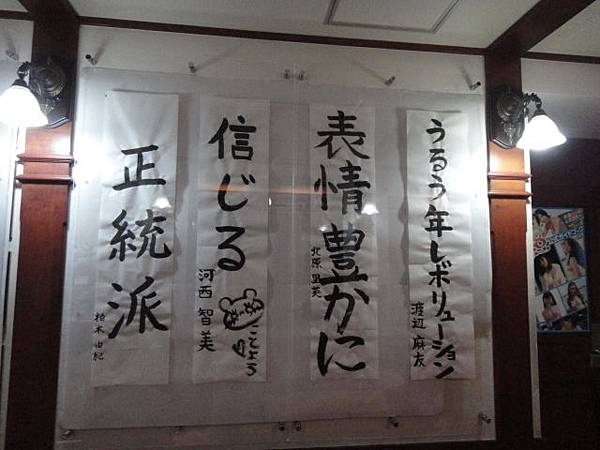 うるう年レボリューション
渡辺 麻友
表情豊かに
北原 里英
信じる
河西 智美
ことよろ
正統派
柏木 由紀